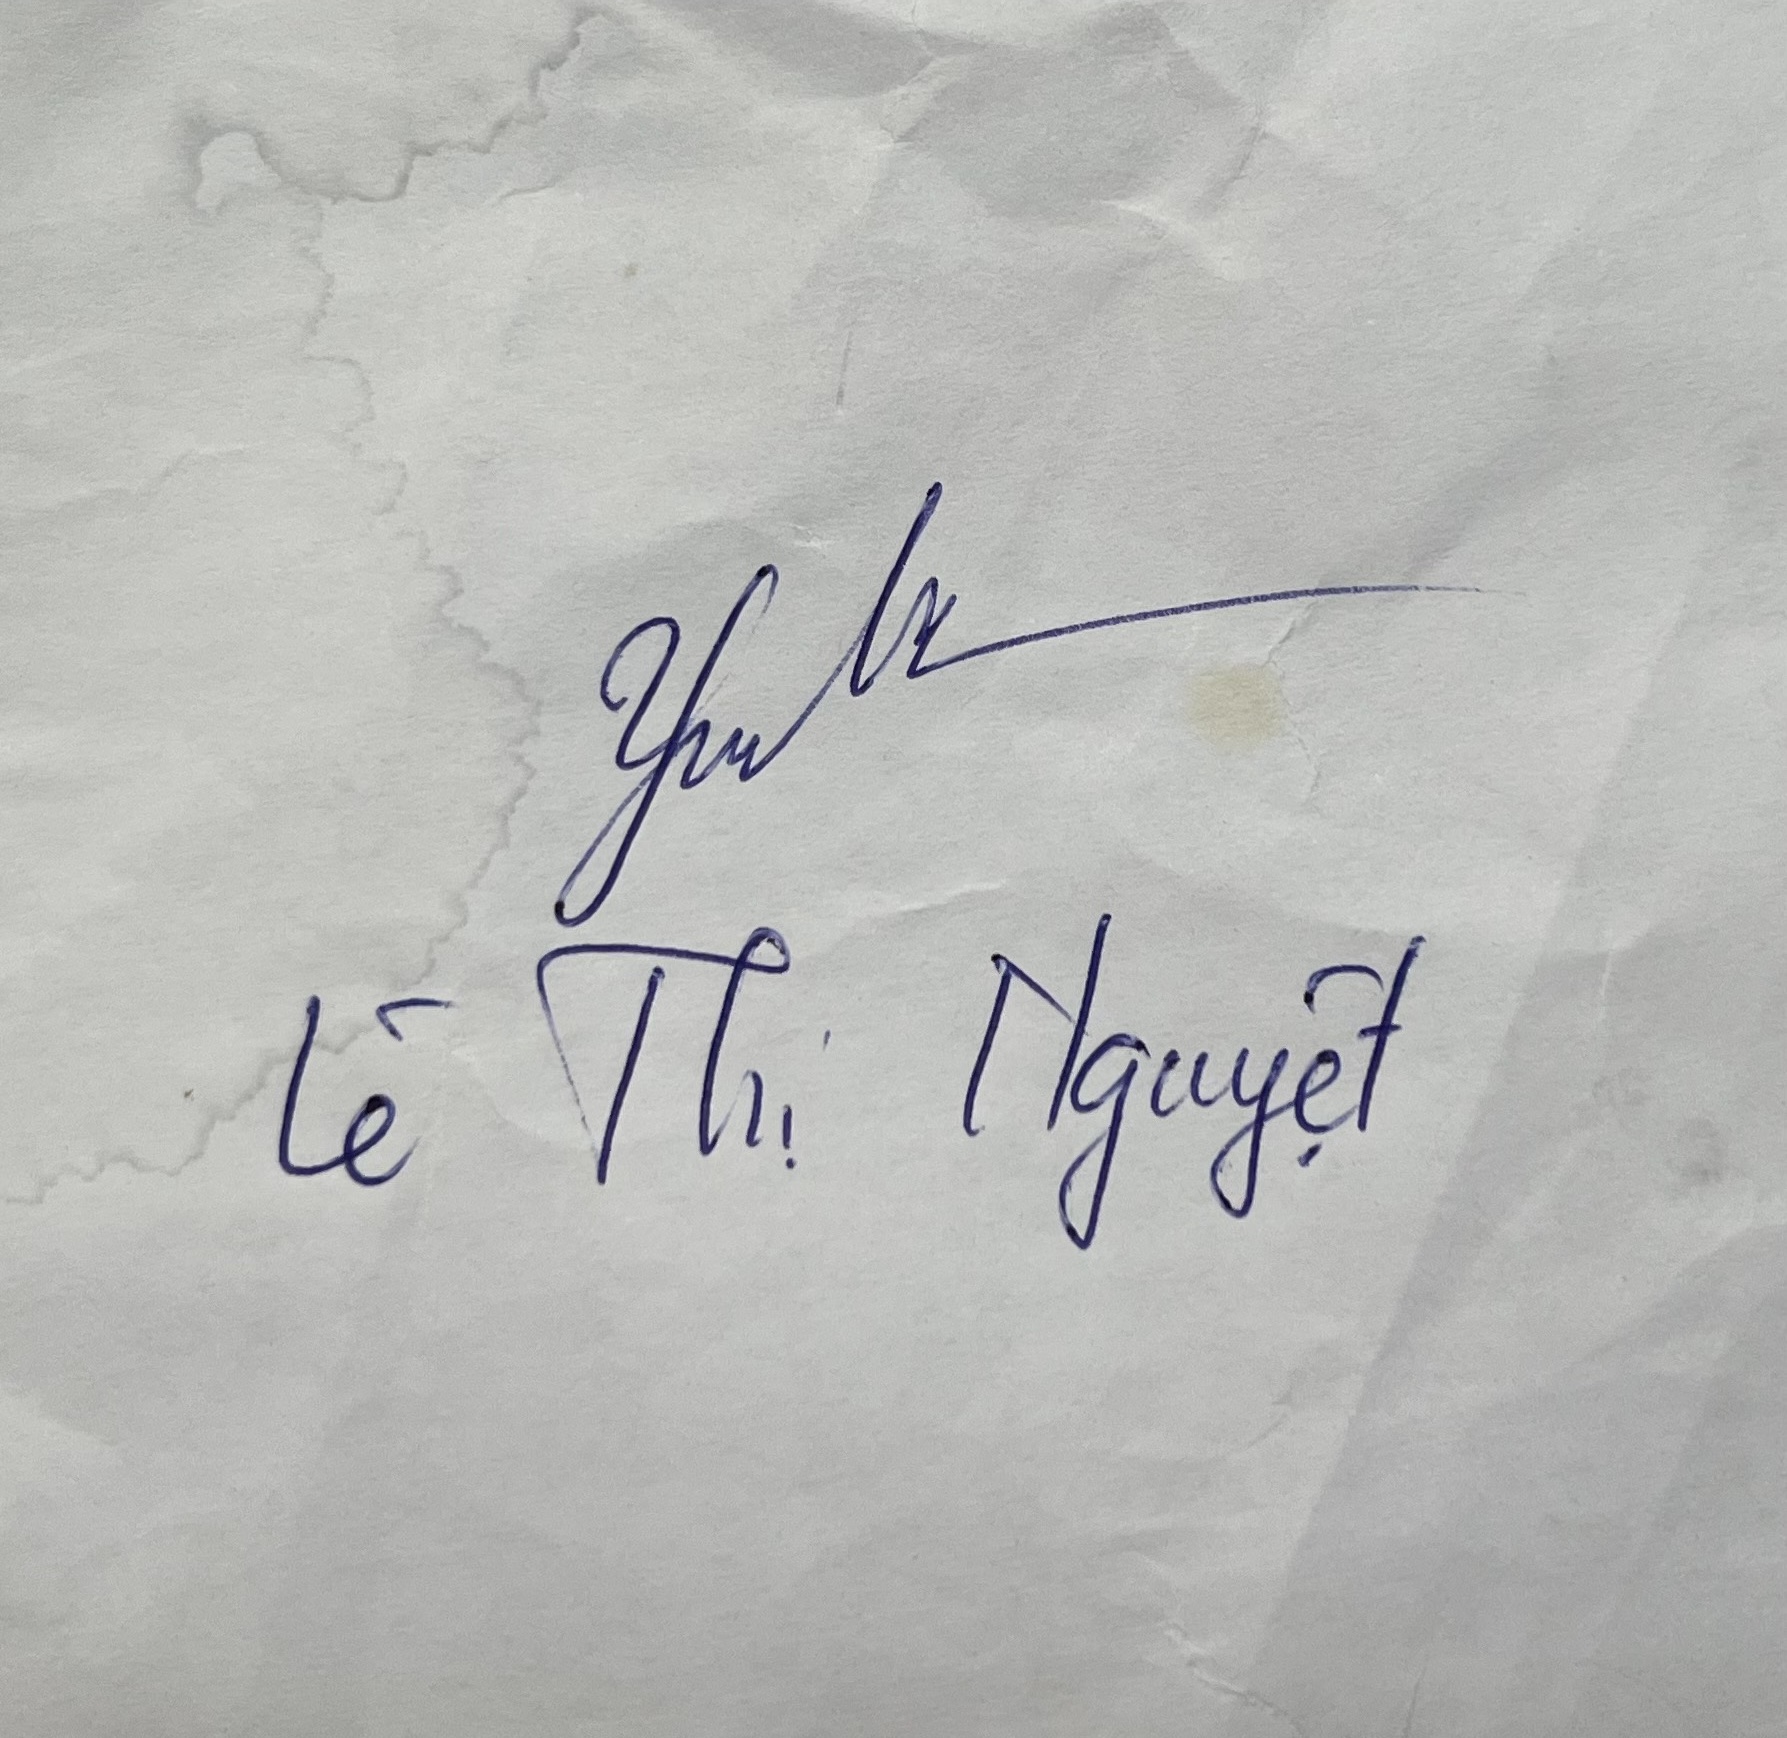 Lê Thị Nguyệt